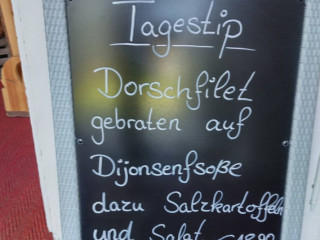 Tagestip
Dorschfilet
gebraten auf
Dijonsenfsoße
dazu Salzkartoffeln
und Salat